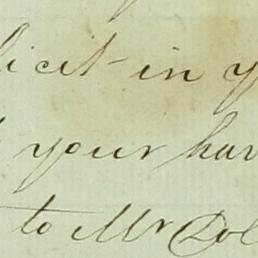 licit in y
your har
to Mr Dol